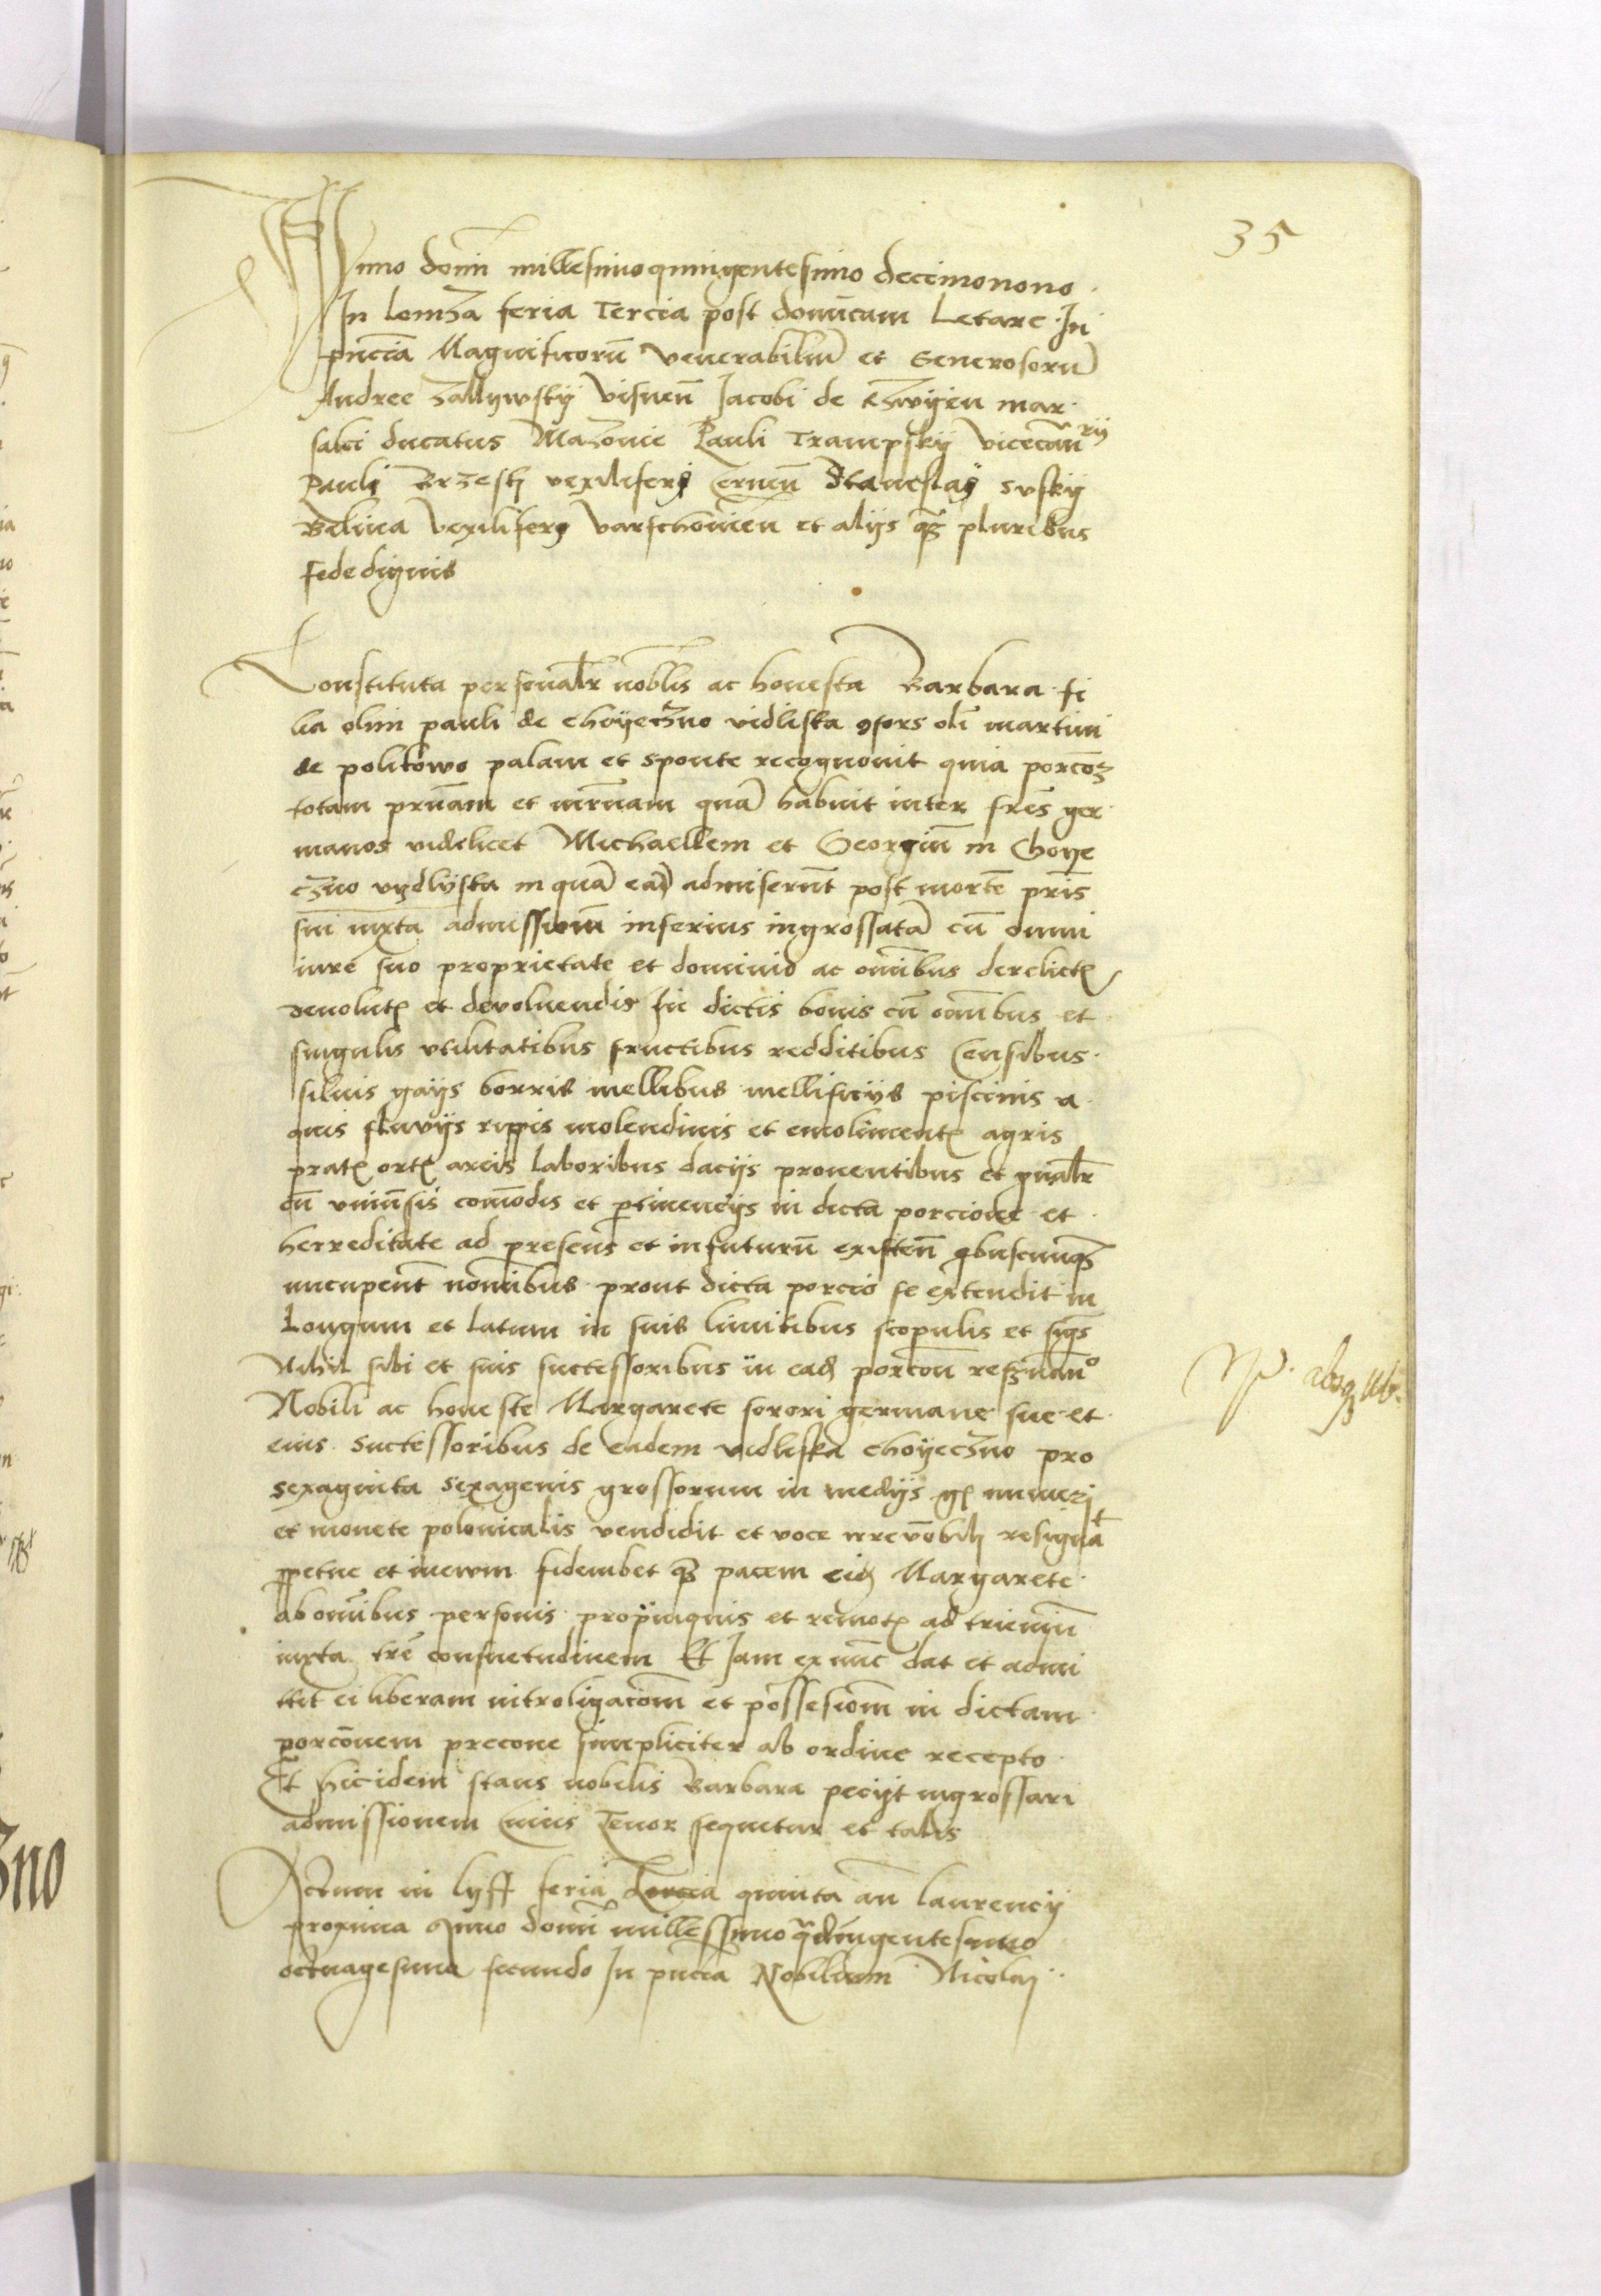 35
Anno domi millesimo quingentesimo decimonono
In lomza feria Tercia post domicam Letare In
pncia Magnificoru venerabiliu et Generosoru
Andree Zallywsky visnen Jacobi de mar
salci ducatus Mazouie Pauli Trampsky vicecan rij
Pauli Brzesky vexiliferi Cernen Stanislay Suski
Belina vexiliferi varschouien et alijs qz pluribus
fidedignis
Constituta personalr noblis ac honesta Barbara fi
lia olim pauli de choyeczno vidliska 9sors oli martini
de politowo palam et sponte recognouit quia porco3
totam prnam et mrnam qua habuit inter fres ger
manos videlicet Michaellem et Georgiu in Choye
czno vydlyska in qua ea admiserut post morte pris
sui iuxta admissiom inferius ingrossata cu omni
iure suo proprietate et dominio ac omibus derelict
deuolut et devoluendis In dictis bonis cu omibus et
singulis vtilitatibus fructibus redditibus Censibus
siluis gays borris mellibus mellificijs piscinis a
quis fluvijs rippis molendinis et emoliment agris
prat ort areis laboribus dacijs prouentibus et gnalr
cu vniusis comodis et ptinencijs in dicta porcione et
herreditate ad presens et in futuru existen qbuscunqz
nucupent nomibus prout dicta porcio se extendit in
Longum et latum in suis limitibus scopulis et sigs
Nihil sibi et suis successoribus in ead porcon reseruano
Nobili ac honeste Margarete sorori germane sue et
eius successoribus de eadem vidliska choyeczno pro
sexaginta sexagenis grossorum in medijs gs numeri
et monete polonicalis vendidit et voce irreuobili resignat
ppetue et ineuum fideiubet qz pacem eid Margarete
ab omibus personis propinquis et remot ad trieniu
iuxta tre consuetudinem Et Jam ex nuc dat et admi
ttit ei liberam introligacom et possesiom in dictam
porconem precone simpliciter ab ordine recepto
Et hic idem stans nobilis Barbara pecijt ingrossari
admissionem Cuius Tenor sequitur et talis
Nr. absqz
Actum in lyff feria quinta an laurencij
proxima Anno domi millessimo qdringentesimo
octuagesimo secundo In pncia Nobilium Nicolai